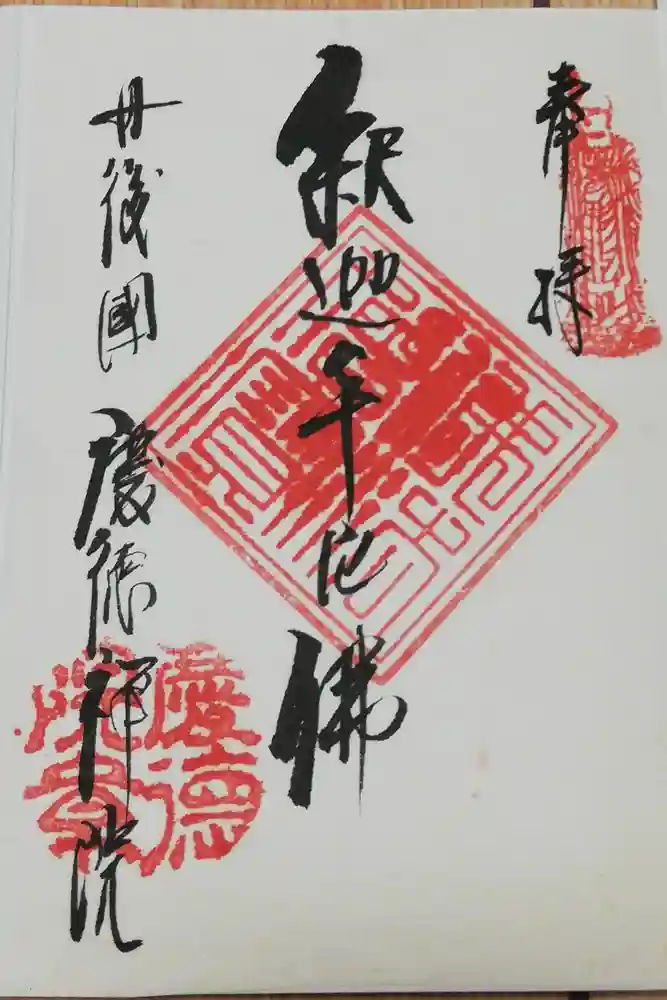 奉拝
釈迦牟尼佛
丹後國 慶徳禅院
慶徳
院寺